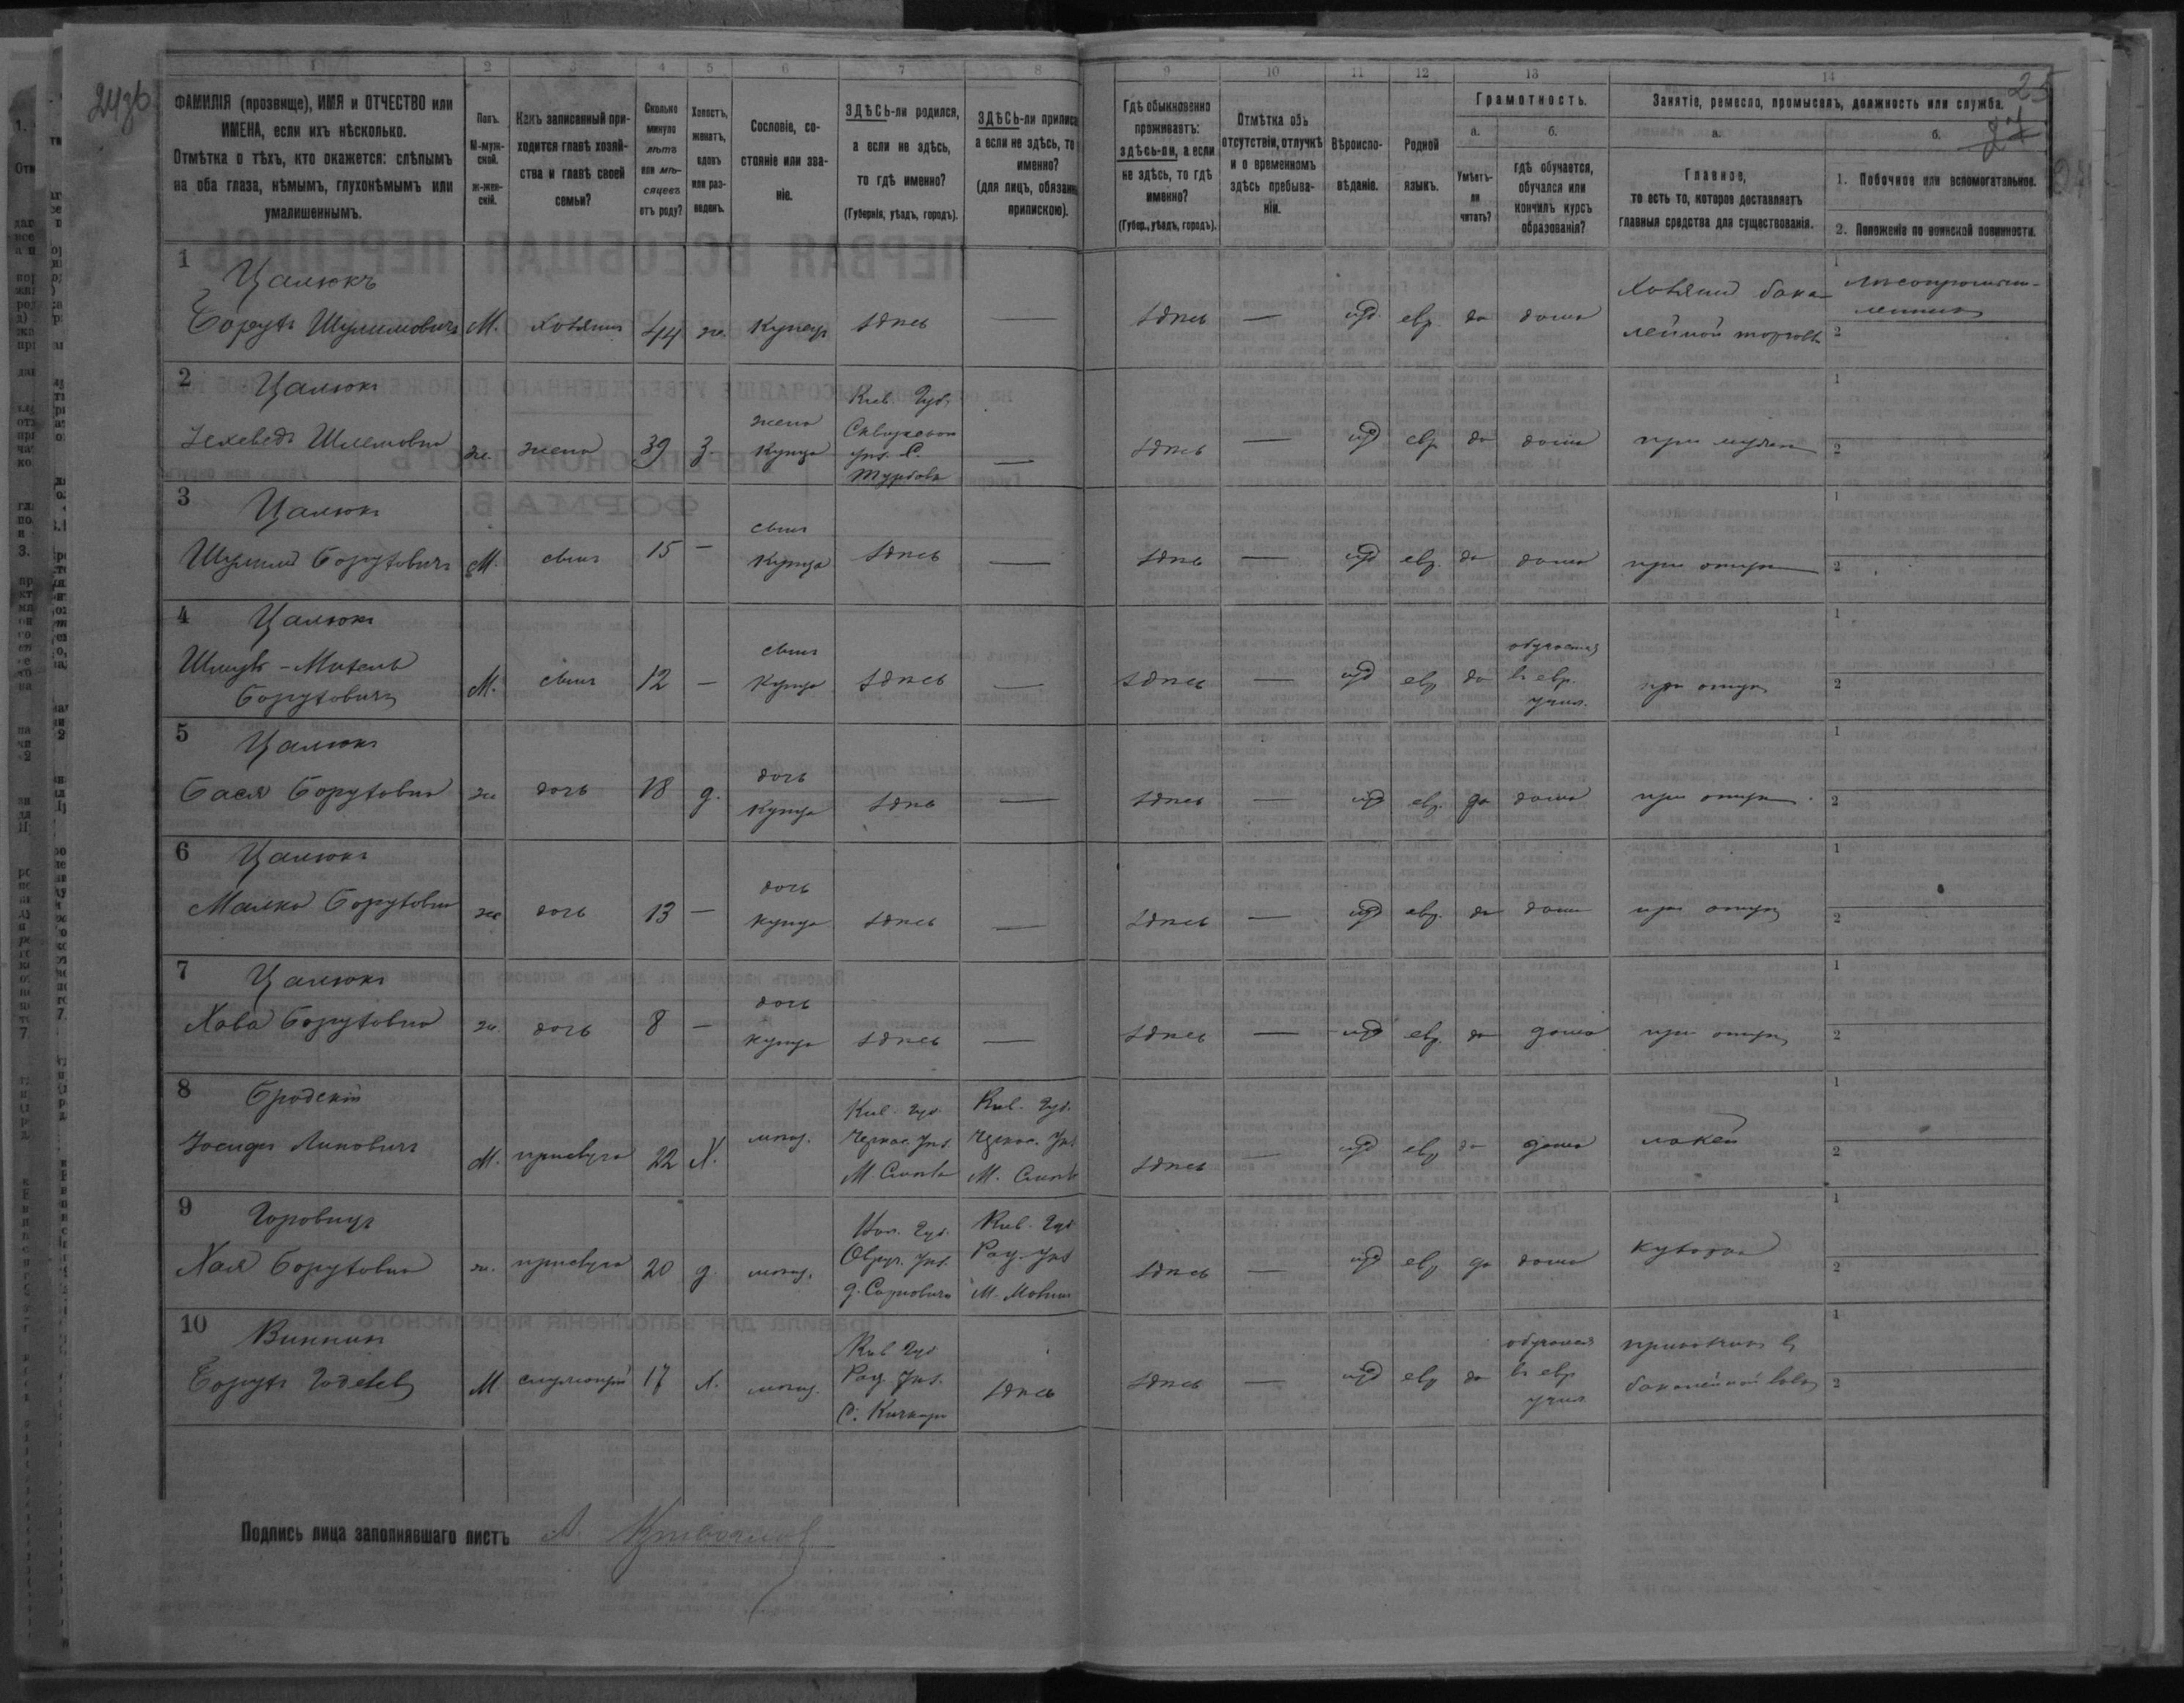 24зб
25
27
1 2 3 4 5 6 7 8 9 10 11 12 13 14
ФАМИЛІЯ (прозвище), ИМЯ и ОТЧЕСТВО или
ИМЕНА, если ихъ нѣсколько.
Отмѣтка о тѣхъ, кто окажется: слѣпымъ
на оба глаза, нѣмымъ, глухонѣмымъ или
умалишеннымъ.
Полъ.
М-муж-
ской.
ж-жен-
скій.
Какъ записанный при-
ходится главѣ хозяй-
ства и главѣ своей
семьи?
Сколько
минуло
лѣтъ
или мѣ-
сяцевъ
отъ роду?
Холостъ,
женатъ,
вдовъ
или раз-
веденъ.
Сословіе, со-
стояніе или зва-
ніе.
ЗДѢСЬ-ли родился,
а если не здѣсь,
то гдѣ именно?
(Губернія, уѣздъ, городъ).
ЗДѢСЬ-ли приписа
а если не здѣсь, то
именно?
(для лицъ, обязанн
припискою).
Гдѣ обыкновенно
проживаетъ:
здѣсь-ли, а если
не здѣсь, то гдѣ
именно?
(Губер., уѣздъ, городъ).
Отмѣтка объ
отсутствіи, отлучкѣ
и о временномъ
здѣсь пребыва-
ніи.
Вѣроиспо-
вѣданіе.
Родной
языкъ.
Грамотность.
а. б.
Умѣетъ-
ли
читать?
гдѣ обучается,
обучался или
кончилъ курсъ
образованія?
Занятіе, ремесло, промыселъ, должность или служба.
а. б.
Главное,
то есть то, которое доставляетъ
главныя средства для существованія.
1. Побочное или вспомогательное.
2. Положеніе по воинской повинности.
1 Цалюкъ
Борухъ Шулимовичъ М. хозяинъ 44 ж. Купецъ здѣсь — здѣсь — іуд. евр. да дома
Хозяинъ бака-
лейной торговли
1 лѣсопромыш-
ленникъ
2
2 Цалюкъ
Іехеведъ Шлемовна ж. жена 39 з.
жена
Купца
Кіев. Губ.
Сквирскаго
уѣз. с.
Турбовъ
— здѣсь — іуд евр да дома при мужѣ
1
2
3 Цалюкъ
Шулимъ Боруховичъ М. сынъ 15 —
сынъ
Купца
здѣсь — здѣсь — іуд евр. да дома при отцѣ
1
2
4 Цалюкъ
Шмулъ-
Боруховичъ М. сынъ 12 —
сынъ
Купца
здѣсь — здѣсь — іуд евр да
обучается
въ евр.
учил.
при отцѣ
1
2
5 Цалюкъ
Бася Боруховна ж. дочь 18 д.
дочь
Купца
здѣсь — здѣсь — іуд евр. да дома при отцѣ
1
2
6 Цалюкъ
Малка Боруховна ж. дочь 13 —
дочь
купца
здѣсь — здѣсь — іуд евр. да дома при отцѣ
1
2
7 Цалюкъ
Хава Боруховна ж. дочь 8 —
дочь
купца
здѣсь — здѣсь — іуд евр. да дома при отцѣ
1
2
8 Бродскій
Іосифъ М. прислуга 22 Х. мѣщ.
Кіев. губ.
Черкас. уѣз.
М. Смѣла
Кіев. губ.
Черкас. уѣз.
М. Смѣла
здѣсь — іуд евр да дома лакей
1
2
9 Горовицъ
Хая Боруховна ж. прислуга 20 д. мѣщ.
Вол. губ.
Овруч. уѣз.
Кіев. губ
Рад. уѣз
М.
здѣсь — іуд евр да дома кухарка
1
2
10
Борухъ М служащій 17 х. мѣщ.
Кіев губ
Рад. уѣз.
с.
здѣсь здѣсь — іуд евр да
обучался
въ евр
учил
прикащикъ въ
бакалейной лавкѣ
1
2
Подпись лица заполнявшаго листъ